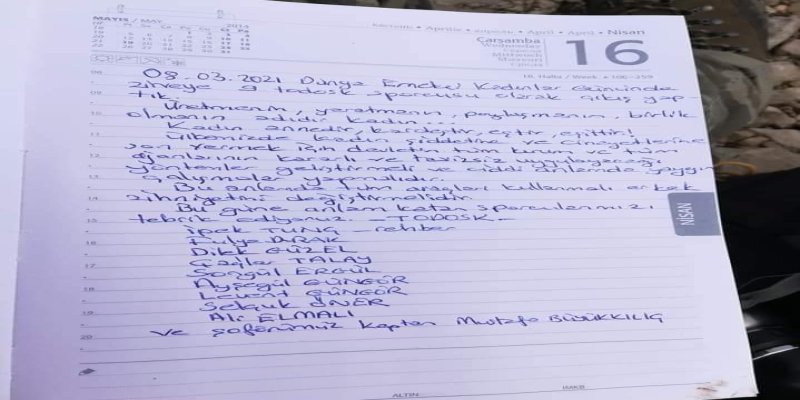 MAYIS / MAY 2014
Nisan
Çarşamba
16
16. Hafta / Week • 106-259
08.03.2021 Dünya Emekçi Kadınlar Gününde
zirveye 9 todosk sporcusu olarak çıkış yap-
tık.
Üretmenin, yaratmanın, paylaşmanın, birlik
olmanın adıdır kadın.
Kadın annedir, kardeştir, eştir, eşittir!
Ülkemizde kadın şiddetine ve cinayetlerine
son vermek için devletin tüm kurum ve
organlarının kararlı ve tavizsiz uygulayacağı
yöntemler geliştirmeli ve ciddi anlamda yaygın
çalışmalar yapmalıdır.
Bu anlamda tüm araçları kullanmalı erkek
zihniyetini değiştirmelidir.
Bu güne anlam katan sporcularımızı
tebrik ediyoruz. - TODOSK -
İpek TUNÇ - rehber
Fulya
Dilek GÜZEL
TALAY
Songül ERGÜL
Ayşegül GÜNGÖR
Levent GÜNGÖR
Selçuk ÖNER
Ali ELMALI
ve şoförümüz kaptan Mustafa BÜYÜKKILIÇ
NİSAN
ALTIN
IMKB